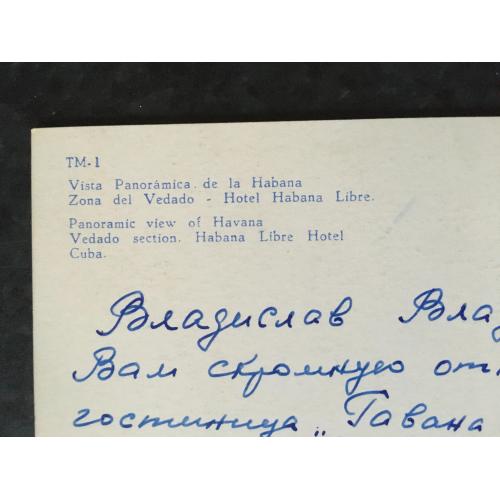 TM-1
Vista Panorámica de la Habana
Zona del Vedado - Hotel Habana Libre.
Panoramic view of Havana
Vedado section. Habana Libre Hotel
Cuba.
Владислав Влад
Вам скромную отк
гостиница „Гавана